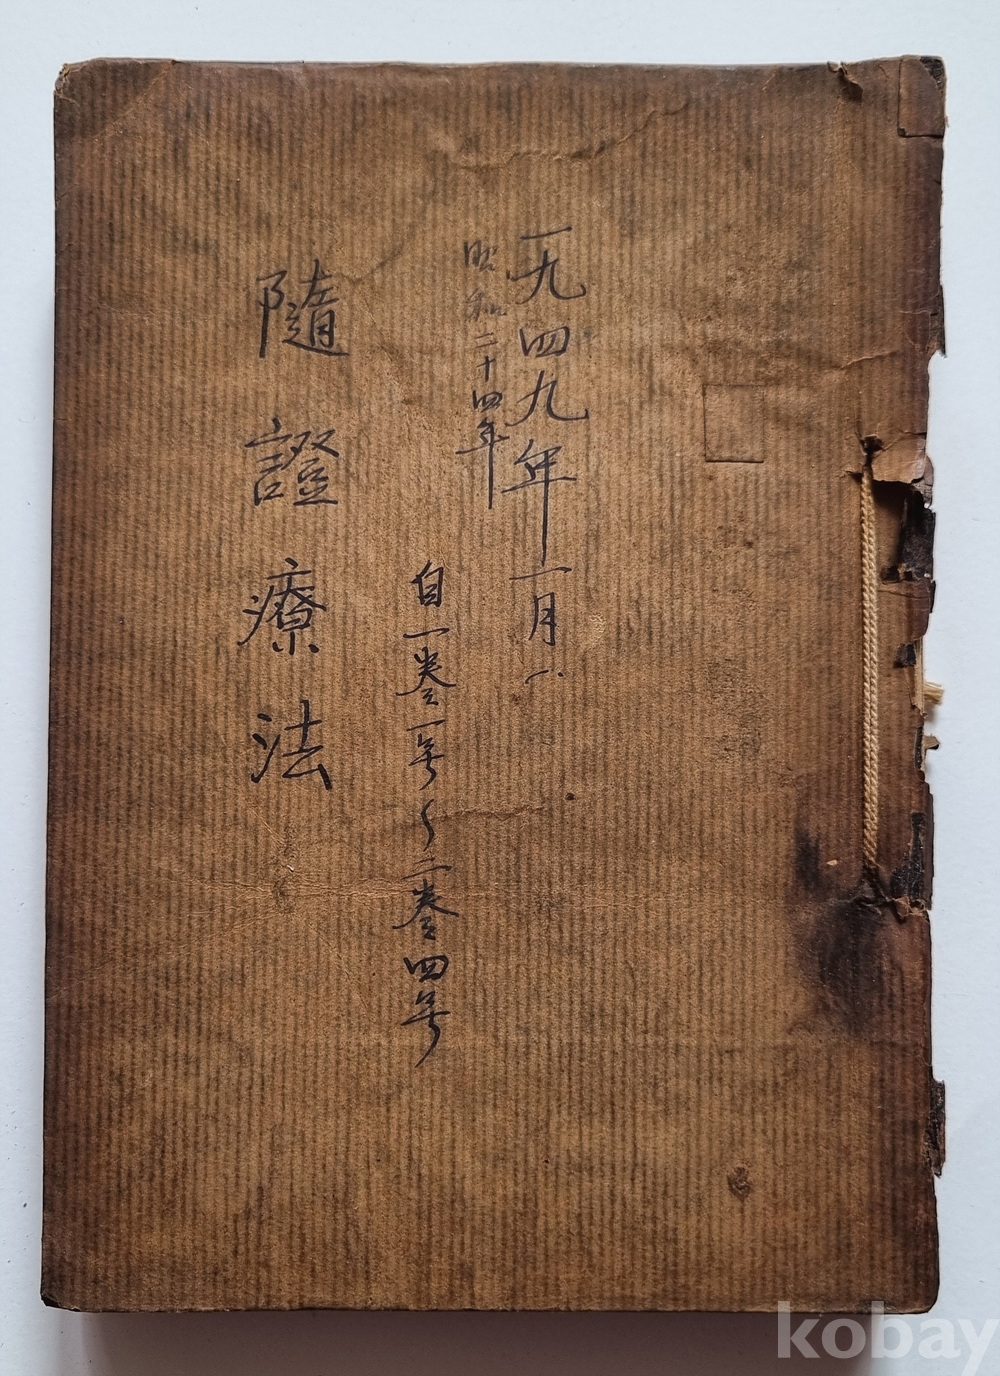 一九四九年一月〜
昭和二十四年
自一巻一号〜二巻四号
隨證療法
kobay